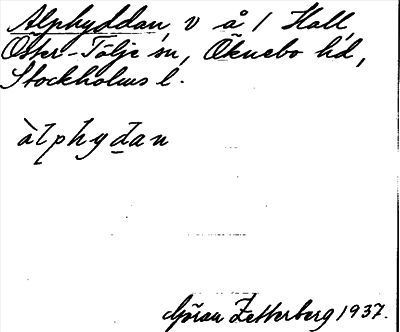 Alphyddan, v å / Hall,
Öster-Tälje sn, Öknebo hd,
Stockholms l.
àlphydan
Göran Zetterberg 1937.